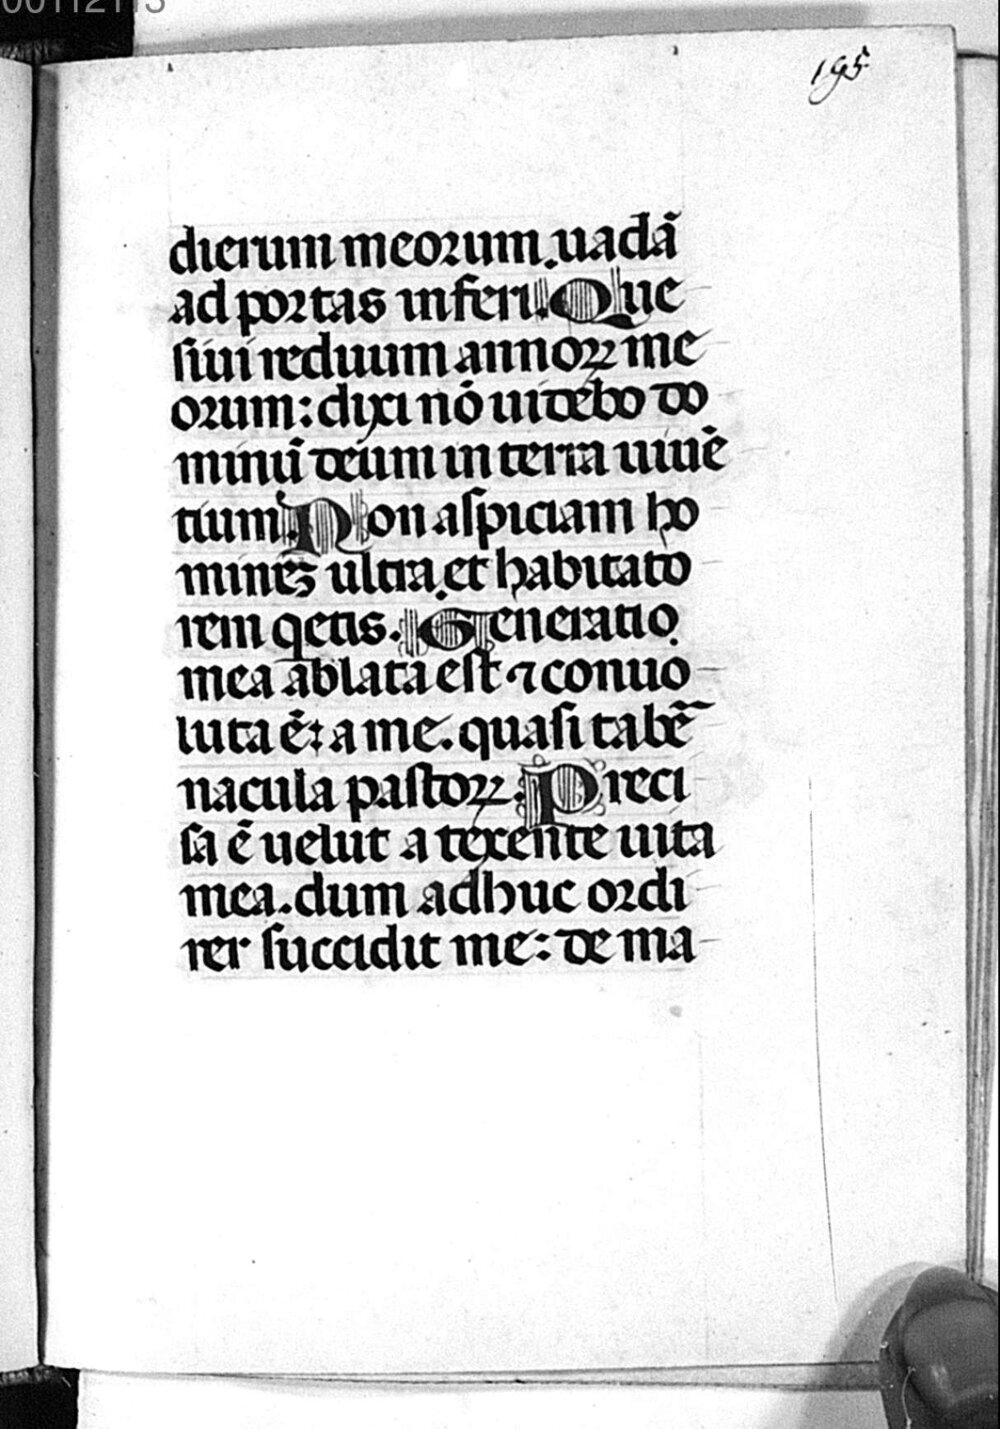 00112113
195
dierum meorum.uadā
ad portas inferi.Que
siui reduum annoꝝ me
orum: dixi nō uidebo do
minū deum in terra uiuē
tium.Non aspiciam ho
minēȝ ultra.et habitato
rem qetis. Generatio
mea ablata est ⁊ conuo
luta ē: a me. quasi tabē
nacula pastoꝝ. Preci
sa ē uelut a texente uita
mea.dum adhuc ordi
rer succidit me: de ma